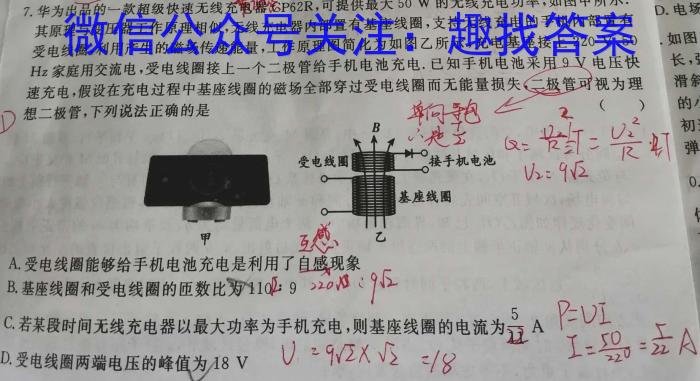 7.华为出品的一款超级快速无线充电器CP62R,可提供最大 50 W 的无线充电功率,如图甲所示.
其原理与变压器工作原理相似,无线充电器内部置有基座线圈,支持无线充电的手机内部置有
受电线圈,利用产生的磁场传递能量,工作原理可简化为如图乙所示.手机电基座接上 220 V,50
Hz 家庭用交流电,受电线圈接上一个二极管给手机电池充电.已知手机电池采用 9 V 电压快
速充电,假设在充电过程中基座线圈的磁场全部穿过受电线圈而无能量损失,二极管可视为理
想二极管,下列说法正确的是 ( )
微信公众号关注:趣找答案
D
单向导电
B
受电线圈
接手机电池
基座线圈
甲
乙
U₂=9√2
互感
A.受电线圈能够给手机电池充电是利用了自感现象
B.基座线圈和受电线圈的匝数比为 110 : 9
220 : 9√2
C.若某段时间无线充电器以最大功率为手机充电,则基座线圈的电流为 5/22 A
P=UI
I=50/220=5/22 A
D.受电线圈两端电压的峰值为 18 V
U=9√2×√2=18
D.电场
.如图
长,
滑斜
的小
初
弹